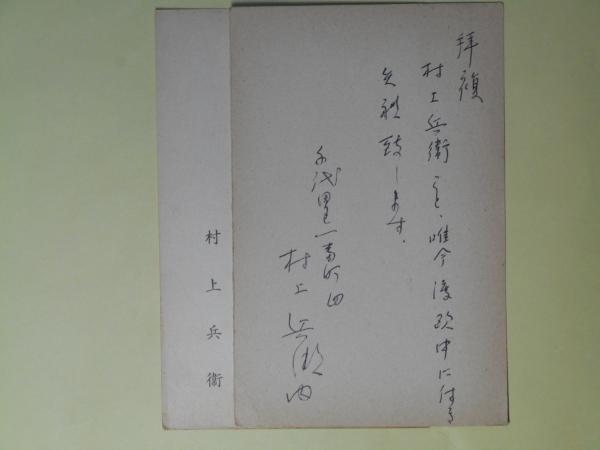 拝復
村上兵衛こと、唯今渡欧中に付き
失礼致します。
千代田区一番町四
村上兵衛内
村上兵衛